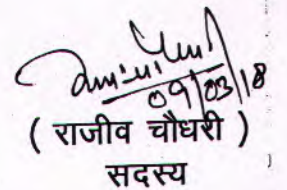 09/03/18
( राजीव चौधरी )
सदस्य